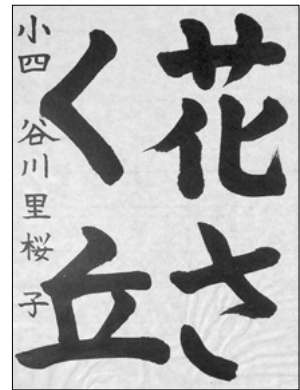 花さ
く丘
小四 谷川里桜子